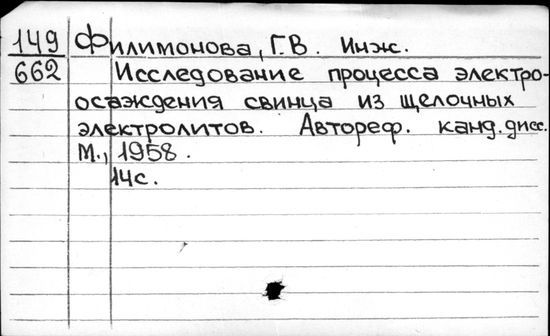 149 Филимонова, Г.В. Инж.
662 Исследование процесса электро-
осаждения свинца из щелочных
электролитов. Автореф. канд. дисс.
М., 1958.
14с.